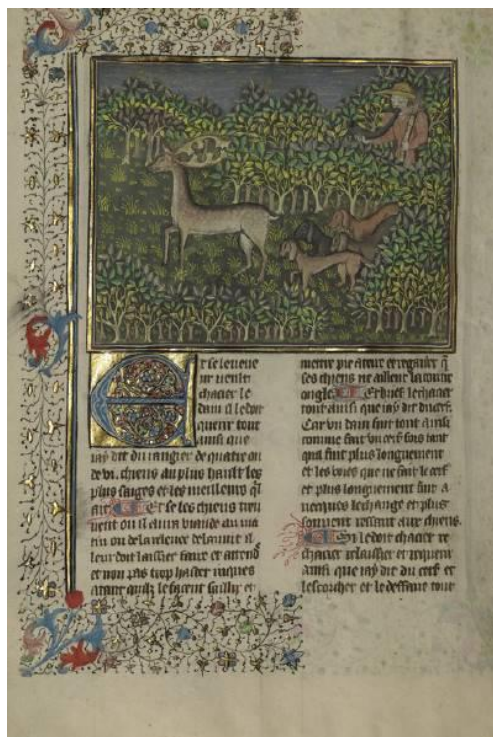 Et se le veneur
veult
chacier le
dain il le doit
querir tout
ainsi que
iay dit du rangier de quatre ou
de vi. chiens au plus hault les
plus saiges et les meilleurs ql
ait Et se les chiens treu
uent ou il ait viande au ma
tin ou de la relevee de la nuit il
leur doit laissier faire et attend
et non pas trop haster iusques
atant quilz le facent saillir et
mettre pie a terre et regarder q
ses chiens ne aillent la contre
ongle Et huer le chacier
tout ainsi que iay dit du cerf.
Car un dain fuit tout ainsi
comme fait un cerf fors tant
quil fuit plus longuement
et les voies que ne fait le cerf
et plus longuement fuit a
uecques le change et plus
souuent ressant aux chiens.
Si le doit chacier re
chacier relaissier et requerir
ainsi que iay dit du cerf et
lescorcher et le deffaire tout